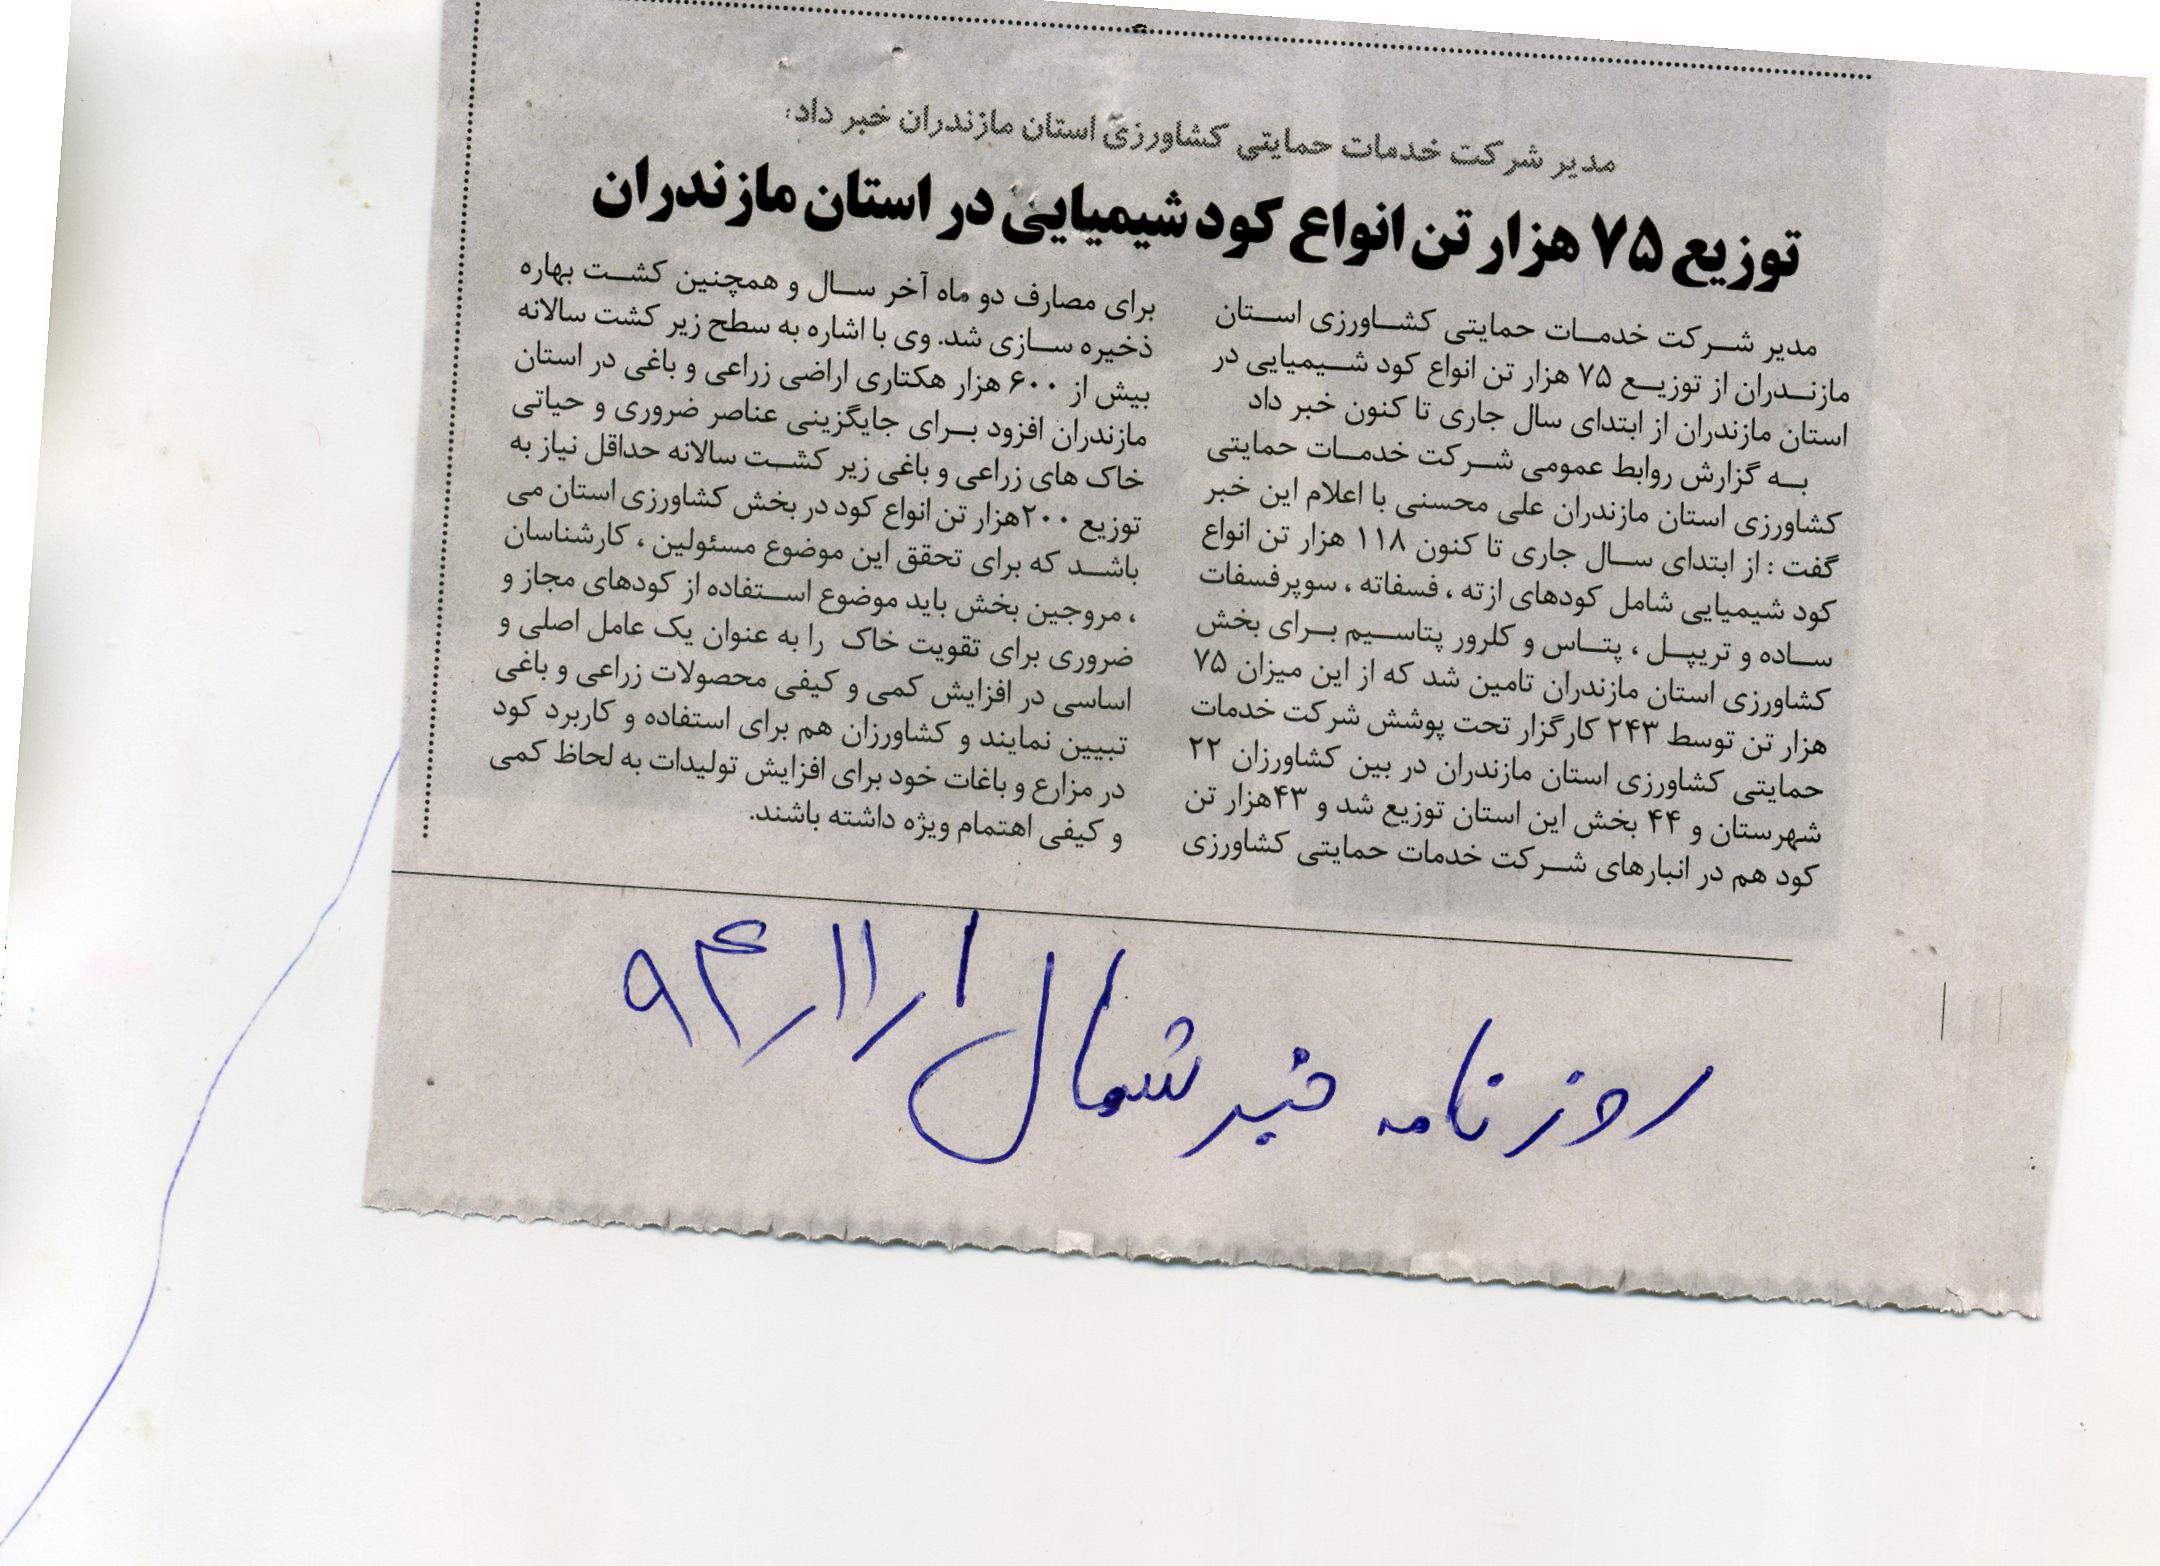 مدیر شرکت خدمات حمایتی کشاورزی استان مازندران خبر داد:
توزیع ۷۵ هزار تن انواع کود شیمیایی در استان مازندران
مدیر شرکت خدمات حمایتی کشاورزی استان
مازندران از توزیع ۷۵ هزار تن انواع کود شیمیایی در
استان مازندران از ابتدای سال جاری تا کنون خبر داد
به گزارش روابط عمومی شرکت خدمات حمایتی
کشاورزی استان مازندران علی محسنی با اعلام این خبر
گفت : از ابتدای سال جاری تا کنون ۱۱۸ هزار تن انواع
کود شیمیایی شامل کودهای ازته ، فسفاته ، سوپرفسفات
ساده و تریپل ، پتاس و کلرور پتاسیم برای بخش
کشاورزی استان مازندران تامین شد که از این میزان ۷۵
هزار تن توسط ۲۴۳ کارگزار تحت پوشش شرکت خدمات
حمایتی کشاورزی استان مازندران در بین کشاورزان ۲۲
شهرستان و ۴۴ بخش این استان توزیع شد و ۴۳هزار تن
کود هم در انبارهای شرکت خدمات حمایتی کشاورزی
برای مصارف دو ماه آخر سال و همچنین کشت بهاره
ذخیره سازی شد. وی با اشاره به سطح زیر کشت سالانه
بیش از ۶۰۰ هزار هکتاری اراضی زراعی و باغی در استان
مازندران افزود برای جایگزینی عناصر ضروری و حیاتی
خاک های زراعی و باغی زیر کشت سالانه حداقل نیاز به
توزیع ۲۰۰هزار تن انواع کود در بخش کشاورزی استان می
باشد که برای تحقق این موضوع مسئولین ، کارشناسان
، مروجین بخش باید موضوع استفاده از کودهای مجاز و
ضروری برای تقویت خاک را به عنوان یک عامل اصلی و
اساسی در افزایش کمی و کیفی محصولات زراعی و باغی
تبیین نمایند و کشاورزان هم برای استفاده و کاربرد کود
در مزارع و باغات خود برای افزایش تولیدات به لحاظ کمی
و کیفی اهتمام ویژه داشته باشند.
روزنامه خبر شمال ۱/۱۱/۹۴